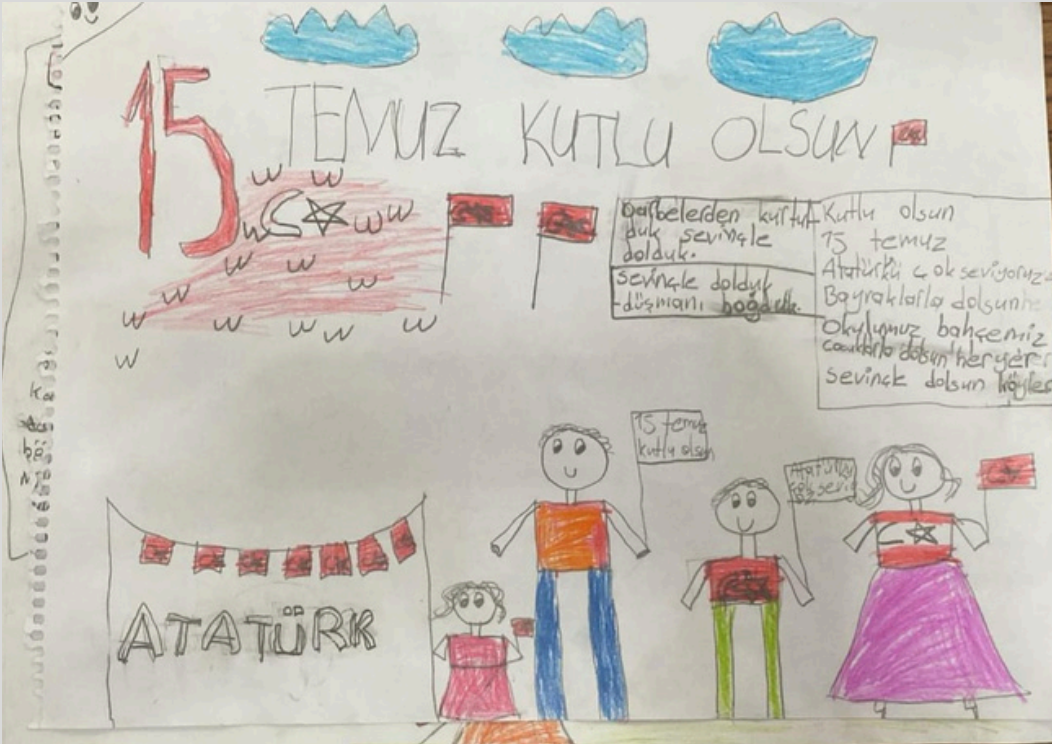 15 TEMUZ KUTLU OLSUN
Darbelerden kurtul
duk sevinçle
dolduk.
sevinçle dolduk
düşmanı boğduk.
Kutlu olsun
15 temuz
Atatürkü çok seviyoruz
Bayraklarla dolsun
Okulumuz bahçemiz
cocuklarla dolsun her yer
sevinçle dolsun köyler
15 temuz
kutlu olsun
Atatürkü
çok sevi
ATATÜRK